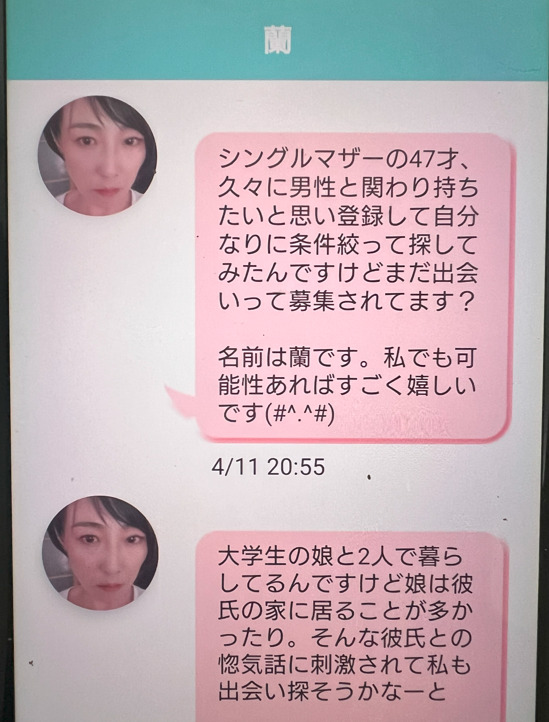 蘭
シングルマザーの47才、
久々に男性と関わり持ち
たいと思い登録して自分
なりに条件絞って探して
みたんですけどまだ出会
いって募集されてます？
名前は蘭です。私でも可
能性あればすごく嬉しい
です(#^.^#)
4/11 20:55
大学生の娘と2人で暮ら
してるんですけど娘は彼
氏の家に居ることが多か
ったり。そんな彼氏との
惚気話に刺激されて私も
出会い探そうかなーと